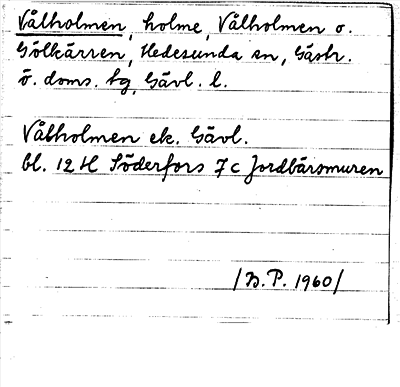 Vålholmen, holme, Vålholmen o.
Gölkärren, Hedesunda sn, Gästr.
ö. doms. tg, Gävl. l.
Vålholmen ek. Gävl.
bl. 12 H Söderfors 7 c Jordbärsmuren
/B.P. 1960/